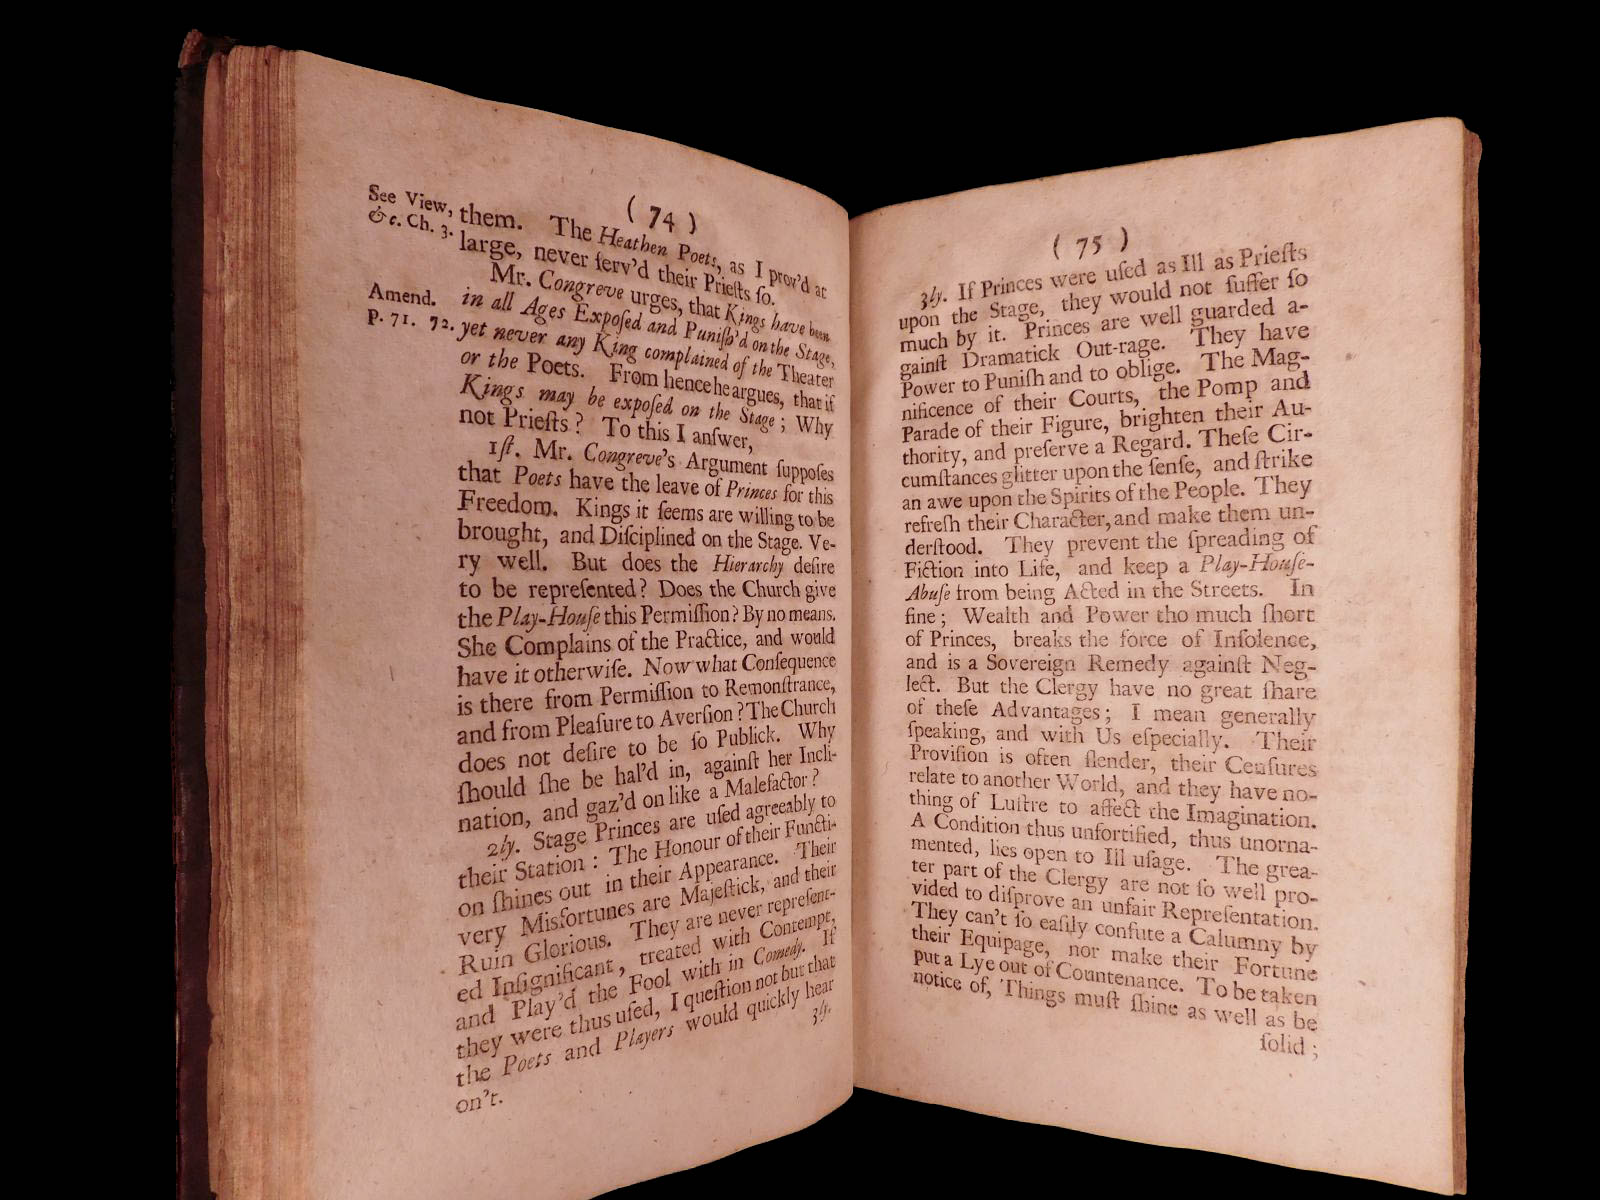 ( 74 )
See View,
&c. Ch. 3.
them. The Heathen Poets, as I prov'd at
large, never ſerv'd their Prieſts ſo.
Mr. Congreve urges, that Kings have been
Amend.
p. 71. 72.
in all Ages Expoſed and Puniſh'd on the Stage,
yet never any King complained of the Theater
or the Poets. From hence he argues, that if
Kings may be expoſed on the Stage; Why
not Prieſts? To this I anſwer,
1ſt. Mr. Congreve's Argument ſuppoſes
that Poets have the leave of Princes for this
Freedom. Kings it ſeems are willing to be
brought, and Diſciplined on the Stage. Ve-
ry well. But does the Hierarchy deſire
to be repreſented? Does the Church give
the Play-Houſe this Permiſſion? By no means.
She Complains of the Practice, and would
have it otherwiſe. Now what Conſequence
is there from Permiſſion to Remonſtrance,
and from Pleaſure to Averſion? The Church
does not deſire to be ſo Publick. Why
ſhould ſhe be hal'd in, againſt her Incli-
nation, and gaz'd on like a Malefactor?
2ly. Stage Princes are uſed agreeably to
their Station: The Honour of their Functi-
on ſhines out in their Appearance. Their
very Misfortunes are Majeſtick, and their
Ruin Glorious. They are never repreſent-
ed Inſignificant, treated with Contempt,
and Play'd the Fool with in Comedy. If
they were thus uſed, I queſtion not but that
the Poets and Players would quickly hear
on't.
3ly.
( 75 )
3ly. If Princes were uſed as Ill as Prieſts
upon the Stage, they would not ſuffer ſo
much by it. Princes are well guarded a-
gainſt Dramatick Out-rage. They have
Power to Puniſh and to oblige. The Mag-
nificence of their Courts, the Pomp and
Parade of their Figure, brighten their Au-
thority, and preſerve a Regard. Theſe Cir-
cumſtances glitter upon the ſenſe, and ſtrike
an awe upon the Spirits of the People. They
refreſh their Character, and make them un-
derſtood. They prevent the ſpreading of
Fiction into Life, and keep a Play-Houſe-
Abuſe from being Acted in the Streets. In
fine; Wealth and Power tho much ſhort
of Princes, breaks the force of Inſolence,
and is a Sovereign Remedy againſt Neg-
lect. But the Clergy have no great ſhare
of theſe Advantages; I mean generally
ſpeaking, and with Us eſpecially. Their
Proviſion is often ſlender, their Cenſures
relate to another World, and they have no-
thing of Luſtre to affect the Imagination.
A Condition thus unfortified, thus unorna-
mented, lies open to Ill uſage. The grea-
ter part of the Clergy are not ſo well pro-
vided to diſprove an unfair Repreſentation.
They can't ſo eaſily confute a Calumny by
their Equipage, nor make their Fortune
put a Lye out of Countenance. To be taken
notice of, Things muſt ſhine as well as be
ſolid;